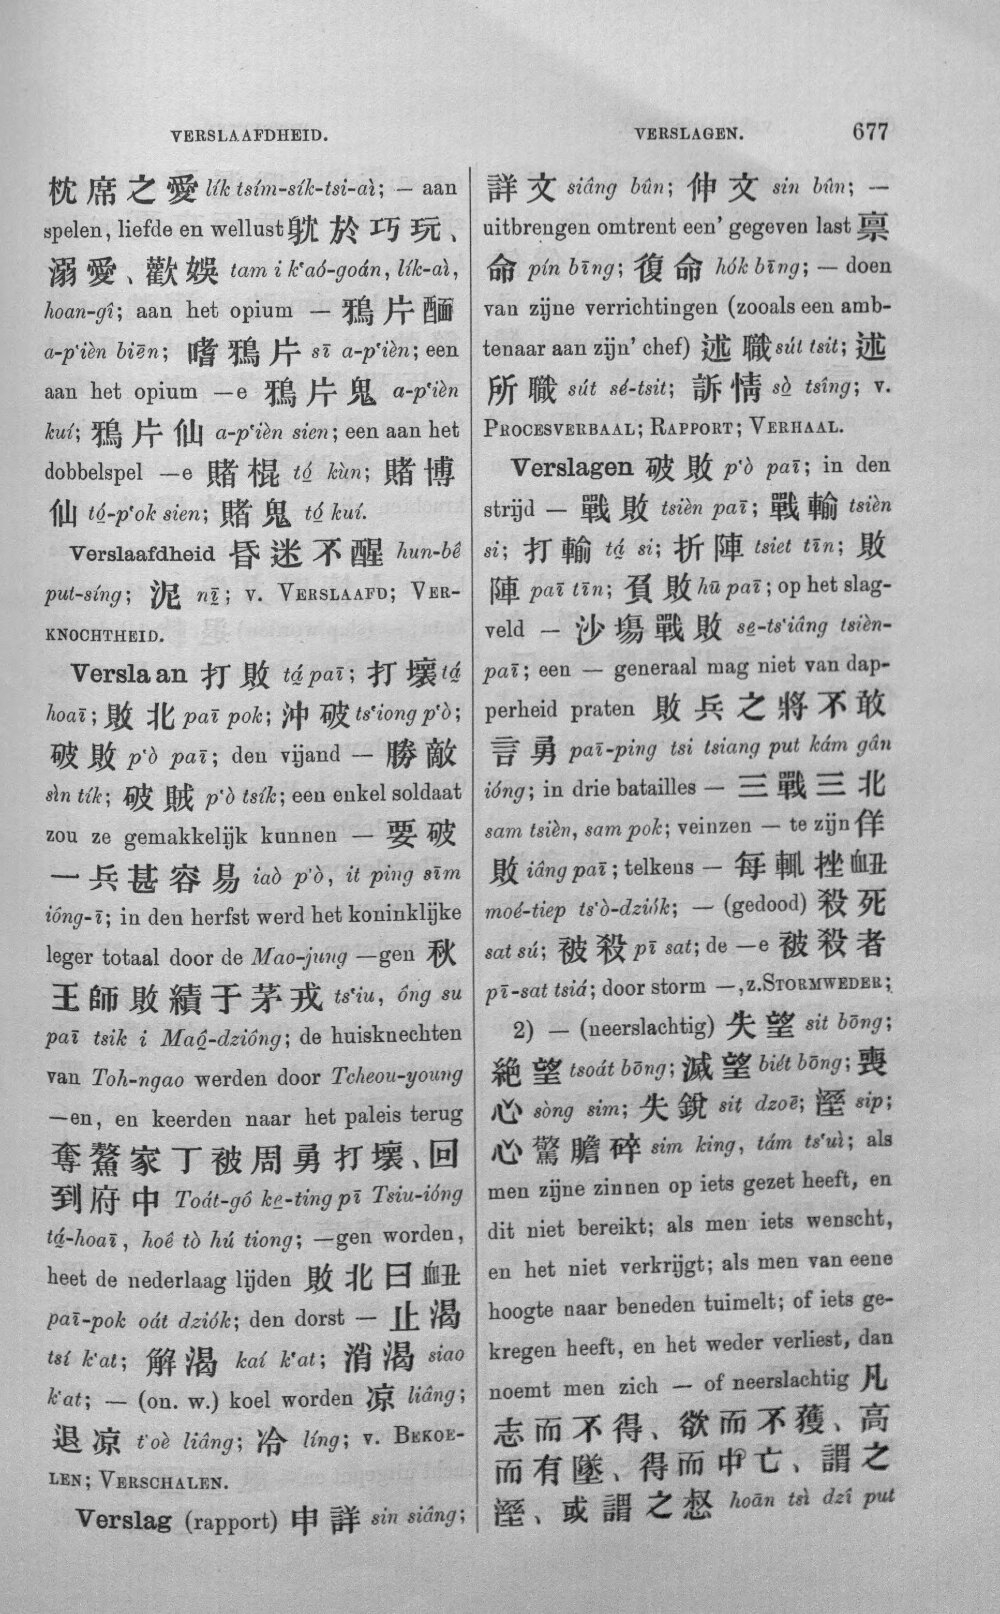 VERSLAAFDHEID.
VERSLAGEN. 677
枕席之愛 lík tsím-sík-tsi-aì; — aan
spelen, liefde en wellust 躭於巧玩、
溺愛、歡娛 tam i k‘aó-goán, lík-aì,
hoan-gî; aan het opium — 鴉片酾
a-p‘ièn biēn; 嗜鴉片 sī a-p‘ièn; een
aan het opium —e 鴉片鬼 a-p‘ièn
kuí; 鴉片仙 a-p‘ièn sien; een aan het
dobbelspel —e 賭棍 tó̤ kùn; 賭博
仙 tó̤-p‘ok sien; 賭鬼 tó̤ kuí.
Verslaafdheid 昏迷不醒 hun-bê
put-síng; 泥 nī̤; v. VERSLAAFD; VER-
KNOCHTHEID.
Verslaan 打敗 tá̤ paī; 打壞 tá̤
hoaī; 敗北 paī pok; 沖破 ts‘iong p‘ò;
破敗 p‘ò paī; den vijand — 勝敵
sìn tík; 破賊 p‘ò tsík; een enkel soldaat
zou ze gemakkelijk kunnen — 要破
一兵甚容易 iaò p‘ò, it ping sīm
ióng-ī; in den herfst werd het koninklijke
leger totaal door de Mao-jung —gen 秋
王師敗績于茅戎 ts‘iu, ông su
paī tsik i Maô̤-dzióng; de huisknechten
van Toh-ngao werden door Tcheou-young
—en, en keerden naar het paleis terug
奪鰲家丁被周勇打壞、回
到府中 Toát-gô ke̤-ting pī Tsiu-ióng
tá̤-hoaī, hoê tò hú tiong; —gen worden,
heet de nederlaag lijden 敗北曰衄
paī-pok oát dziók; den dorst — 止渴
tsí k‘at; 解渴 kaí k‘at; 消渴 siao
k‘at; — (on. w.) koel worden 凉 liâng;
退凉 t‘oè liâng; 冷 líng; v. BEKOE-
LEN; VERSCHALEN.
Verslag (rapport) 申詳 sin siâng;
詳文 siâng bûn; 伸文 sin bûn; —
uitbrengen omtrent een’ gegeven last 禀
命 pín bīng; 復命 hók bīng; — doen
van zijne verrichtingen (zooals een amb-
tenaar aan zijn’ chef) 述職 sút tsit; 述
所職 sút sé-tsit; 訴情 sò̤ tsîng; v.
PROCESVERBAAL; RAPPORT; VERHAAL.
Verslagen 破敗 p‘ò paī; in den
strijd — 戰敗 tsièn paī; 戰輸 tsièn
si; 打輸 tá̤ si; 折陣 tsiet tīn; 敗
陣 paī tīn; 負敗 hū paī; op het slag-
veld — 沙塲戰敗 se̤-ts‘iâng tsièn-
paī; een — generaal mag niet van dap-
perheid praten 敗兵之將不敢
言勇 paī-ping tsi tsiang put kám gân
ióng; in drie batailles — 三戰三北
sam tsièn, sam pok; veinzen — te zijn 佯
敗 iâng paī; telkens — 每輒挫衄
moé-tiep ts‘ò-dziók; — (gedood) 殺死
sat sú; 被殺 pī sat; de —e 被殺者
pī-sat tsiá; door storm —, z. STORMWEDER;
2) — (neerslachtig) 失望 sit bōng;
絶望 tsoát bōng; 滅望 biét bōng; 喪
心 sòng sim; 失銳 sit dzoē; 溼 sip;
心驚膽碎 sim king, tám ts‘uì; als
men zijne zinnen op iets gezet heeft, en
dit niet bereikt; als men iets wenscht,
en het niet verkrijgt; als men van eene
hoogte naar beneden tuimelt; of iets ge-
kregen heeft, en het weder verliest, dan
noemt men zich — of neerslachtig 凡
志而不得、欲而不獲、高
而有墜、得而中亡、謂之
溼、或謂之惄 hoān tsì dzî put